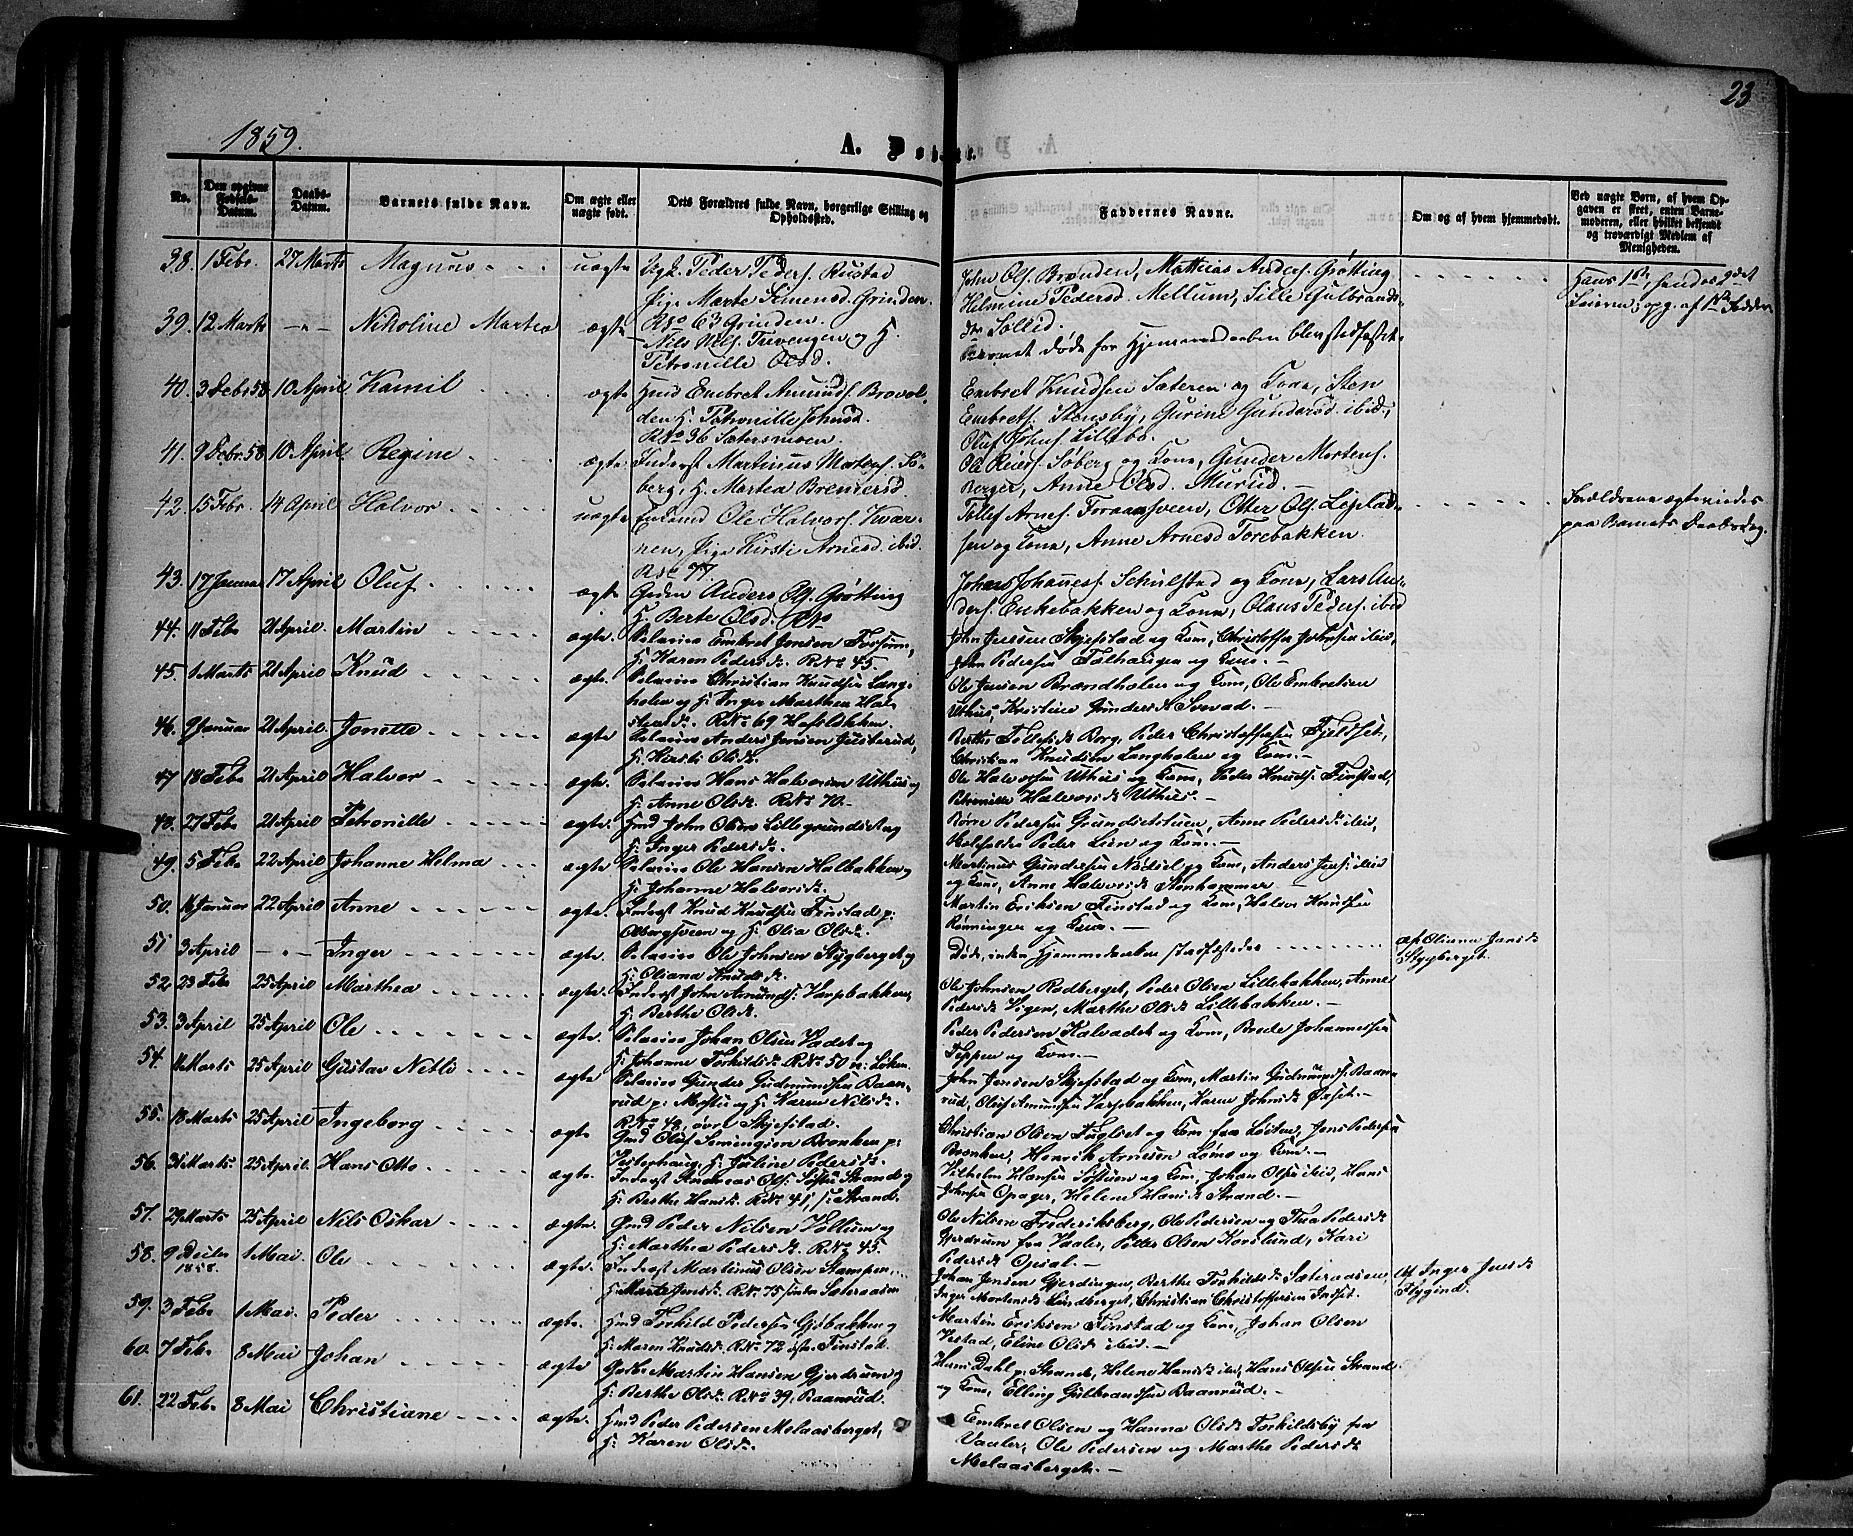 23
1859.
A. Døbte.
No.
Den opgivne Fødsels-Datum.
Daabs-Datum.
Barnets fulde Navn.
Om ægte eller uægte født.
Dets Forældres fulde Navn, borgerlige Stilling og Opholdssted.
Faddernes Navne.
Om og af hvem hjemmedøbt.
Ved uægte Børn, af hvem Opgaven er skeet, enten Barnemoderen, eller hvilket bekjendt og troværdigt Medlem af Menigheden.
38. 1 Febr. 27 Marts Magnus uægte Ugk. Peder Peders. Rustad
Pige Marte Simensd. Grinden.
R No 63 Grinden.
John Ols. Brænden, Mathias Anders. Grøtting
Helmine Pedersd. Mellum, Sille Gulbrands-
dr Sollid.
39. 12 Marts -"- Nikoline Martea ægte Nils Nils. Trevengen og H.
Petronille Olsd.
Barnet døde før Hjemmedaaben blev stadfæstet.
40. 3 Febr 58 10 April Kamil ægte Hmd Embret Amunds. Brovol-
den H. Petronille Johnsd.
R No 36 Sætersmoen.
Embret Knudsen Sæteren og Kone, Sten
Embrets. Stensby, Gurine Gundersd. ibid,
Oluf Johns. Lillebo.
41. 9 Febr. 58 10 April Regine ægte Inderst Martinus Mortens. Sö-
berg, H. Martea Brentersd.
Ole Reiers. Søberg og Kone, Gunder Mortens.
Berger, Anne Olsd. Murud.
42. 15 Febr. 14 April Halvor uægte Enkemd Ole Halvors. Kvær-
nen, Pige Kirsti Arnesd. ibid.
R No 77
Tollef Arnes. Foraasveen, Otter Ols. Løpstad-
sen og Kone, Anne Arnesd Torebakken.
Forældrene ægteviedes
paa Barnets Daabsdag.
43. 17 Januar 17 April Oluf ægte Grdm Anders Ols. Grøtting
H. Berte Olsd. R No
Johans Johannes. Schulstad og Kone, Lars An-
ders. Enkebakken og Kone, Olaus Peders. ibid
44. 11 Febr 21 April. Martin ægte Selveier Embret Jensen Fossum,
H. Karen Pedersd. R No 45.
John Jensen Skjefstad og Kone, Christoffer Johnsen ibid,
John Pedersen Tælhaugen og Kone.
45. 1 Marts 21 April Knud ægte. Selveier Christian Knudsen Lang-
holen og H. Inger Marthea Hal-
R No 69
Ole Jensen Brændholen og Kone, Ole Embretsen
Uthus, Kristine Gundersd. Svevad.
46. 9 Januar 21 April. Jonette ægte Selveier Anders Jensen Justerud,
H. Kirsti Olsdr.
Berthe Tollefsd. Borg, Peder Christoffersen Fjeldset,
Christian Knudsen Langholen og Kone.
47 18 Febr 21 April Halvor ægte. Selveier Hans Halvorsen Uthus og
H. Anne Olsdr. R No 70.
Ole Halvorsen Uthus og Kone, Peder Knuds. Finstad,
Petronille Halvorsdr Uthus.
48. 27 Febr 21 April Petronille ægte. Hmd John Olsen Lillegrundset og
H. Inger Pedersdr.
Børre Pedersen Grundsetstuen, Anne Pedersdr ibid,
Peder Lien og Kone.
49. 5 Febr 22 April Johanne Helma ægte Selveier Ole Hansen Halbakken og
H. Johanne Halvorsdr.
Martinus Gundersen Nødsel og Kone, Anders Jens. ibid
og Kone, Anne Halvorsdr Stenhammer
50. 16 Januar 22 April Anne ægte. Inderst Knud Knudsen Finstad p:
Olbergsveen og H. Olia Olsdr.
Martin Eriksen Finstad og Kone, Halvor Knudsen
Rønningen og Kone.
51 3 April -"- Inger ægte. Selveier Ole Johnsen Stygberget og
H. Oliana Knudsdr.
Døde, inden Hjemmedaaben stadfæstedes
af Oliana Jansdr
Stygberget.
52 23 Febr 25 April Marthea ægte. Inderst John Amunds. Varpbakken,
H. Berthe Olsdr.
Ole Johnsen Rødberget, Peder Olsen Lillebakken, Anne
Pedersdr Vigen, Marthe Olsdr Lillebakken.
53. 3 April 25 April Ole ægte. Selveier Johan Olsen Vadet og
H. Johanne Torkildsdr. R No 50 n: Løken.
Peder Pedersen Kalvadet og Kone, Brede Johannessen
Teppen og Kone.
54. 11 Marts 25 April Gustav Netli ægte Selveier Gunder Gudmundsen Baan-
rud p: og H. Karen Nilsdr.
R No 48, øvre Skjefstad.
John Jensen Skjefstad og Kone, Martin Gudmunds. Baan-
rud, Oluf Amundsen Varpbakken, Karen Johnsdr Øxset.
55. 18 Marts 25 April Ingeborg ægte Gmd Oluf Semingsen Brænken p:
Vestephaug, H. Juline Pedersdr.
Christian Olsen Fuglset og Kone fra Løiten, Jens Pedersen
Brænken, Henrik Arnesen Lømo og Kone.
56. 31 Marts. 25 April. Hans Otto ægte. Inderst Andreas Ols. Søstu Strand og
H. Berthe Hansdr. R No 41, s: Strand.
Vilhelm Hansen Søstuen og Kone, Johan Olsen ibid, Hans
Johnsen Opager, Helene Hansdr Strand.
57. 29 Marts 25 April Nils Oskar ægte. Gmd Peder Nilsen Vollum og
H: Marthea Pedersdr. R No 45.
Ole Nilsen Frederiksberg, Ole Pedersen og Thea Pedersdr
Gjerdrum fra Vaaler, Petter Olsen Korslund, Kari
Pedersdr Opsal.
58. 9 Decbr 1858. 1 Mai. Ole ægte. Inderst Martinus Olsen Stampen,
H. Marte Jensdr. R No 75 Sæteraasen
Johan Jensen Gjerdingen, Berthe Torkildsdr Sæteraasen
Inger Mortensdr Lundberget, Christian Christoffersen Indset.
Af Inger Jensdr
Flygind.
59. 3 Febr 1 Mai. Peder ægte. Hmd Torkild Pedersen Gjøbakken og
H. Maren Knudsdr. R No 72 østre Finstad.
Martin Eriksen Finstad og Kone, Johan Olsen
Vestad, Eline Olsdr ibid.
60. 7 Febr 8 Mai Johan ægte Gaabr Martin Hansen Gjerdrum og
H: Berthe Olsdr. R No 39, Baanrud.
Hans Dahl p: Strande, Helene Hansdr ibid, Hans Olsen Strand
og Kone, Elling Gulbrandsen Baanrud.
61. 22 Febr 8 Mai Christiane ægte. Hmd Peder Pedersen Melaasberget,
H. Karen Olsdr.
Embret Olsen og Hanna Olsdr Torkildsby fra
Vaaler, Ole Pedersen og Marthe Pedersdr
Melaasberget.